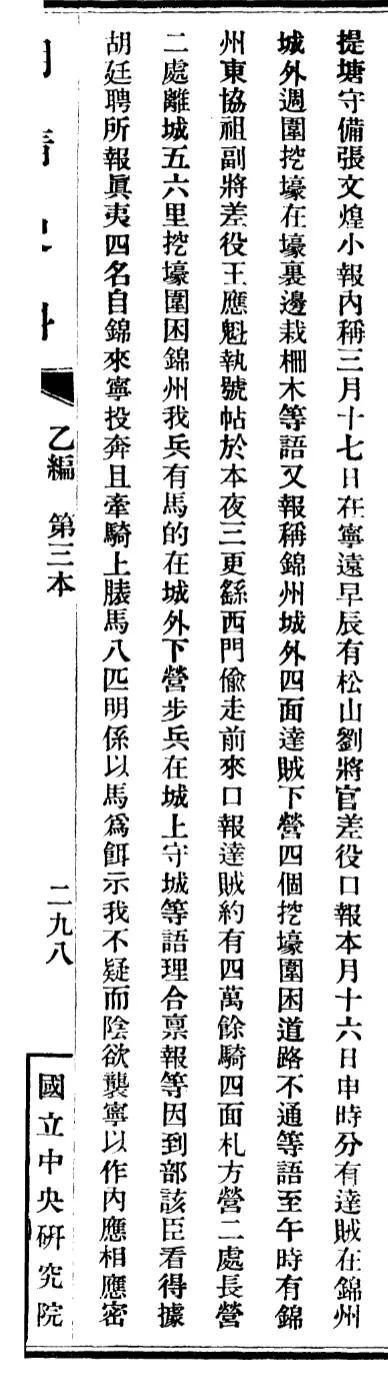 提塘守備張文煌小報內稱三月十七日在寧遠早辰有松山劉將官差役口報本月十六日申時分有達賊在錦州
城外週圍挖壕在壕裏邊栽柵木等語又報稱錦州城外四面達賊下營四個挖壕圍困道路不通等語至午時有錦
州東協祖副將差役王應魁執號帖於本夜三更繇西門偷走前來口報達賊約有四萬餘騎四面札方營二處長營
二處離城五六里挖壕圍困錦州我兵有馬的在城外下營步兵在城上守城等語理合稟報等因到部該臣看得據
胡廷聘所報眞夷四名自錦來寧投奔且牽騎上膘馬八匹明係以馬爲餌示我不疑而陰欲襲寧以作內應相應密
明清史料
乙編 第三本
二九八
國立中央研究院